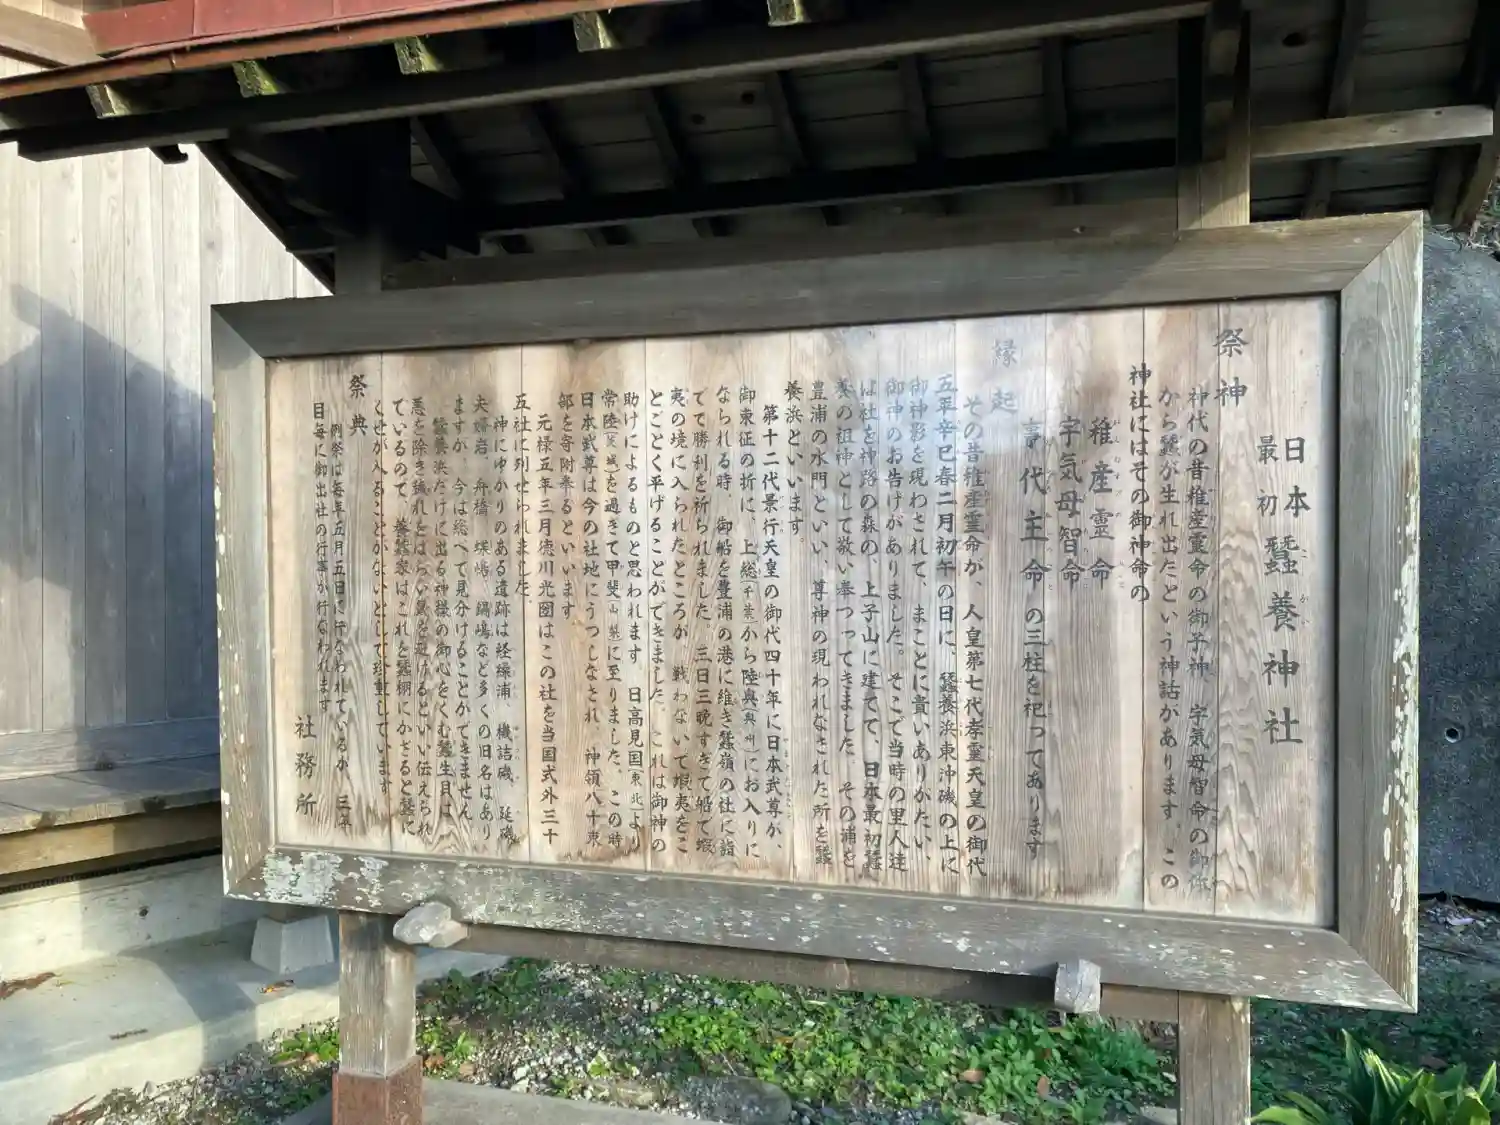 日本
最初
蠶養神社
祭神
神代の昔稚産霊命の御子神、宇気母智命の御体
から蠶が生れ出たという神話があります。この
神社にはその御神命の
稚産霊命
宇気母智命
事代主命の三柱を祀ってあります
縁起
その昔稚産霊命が、人皇第七代孝霊天皇の御代
五年辛巳春二月初午の日に、蠶養浜東沖磯の上に
御神影を現わされて、まことに貴いありがたい、
御神のお告げがありました。そこで当時の里人達
は社を神路の森の、上子山に建てて、日本最初蠶
養の祖神として敬い奉つってきました。その浦を
豊浦の水門といい、尊神の現われなされた所を蠶
養浜といいます。
第十二代景行天皇の御代四十年に日本武尊が、
御東征の折に、上総(千葉)から陸奥(奥州)にお入りに
なられる時、御船を豊浦の港に維き蠶嶺の社に詣
でて勝利を祈られました。三日三晩すぎて船で蝦
夷の境に入られたところが、戦わないで蝦夷をこ
とごとく平げることができました。これは御神の
助けによるものと思われます。日高見国(東北)より
常陸(茨城)を過ぎて甲斐(山梨)に至りました。この時
日本武尊は今の社地にうつしなされ、神領八十束
部を寄附奉るといいます。
元禄五年三月徳川光圀はこの社を当国式外三十
五社に列せられました。
神にゆかりのある遺跡は経繰浦、機詰磯、延磯
夫婦岩、舟橋、蝶嶋、鍋嶋など多くの旧名はあり
ますが、今は総べて見分けることができません
蠶養浜だけに出る神様の御心をくむ蠶生貝は
悪を除き穢れをはらい鼠を避けるといい伝えられ
ているので、養蠶家はこれを蠶棚にかざると蠶に
くせが入ることがないとして珍重しています
祭典
例祭は毎年五月五日に行なわれているが、三年
目毎に御出社の行事が行なわれます
社務所